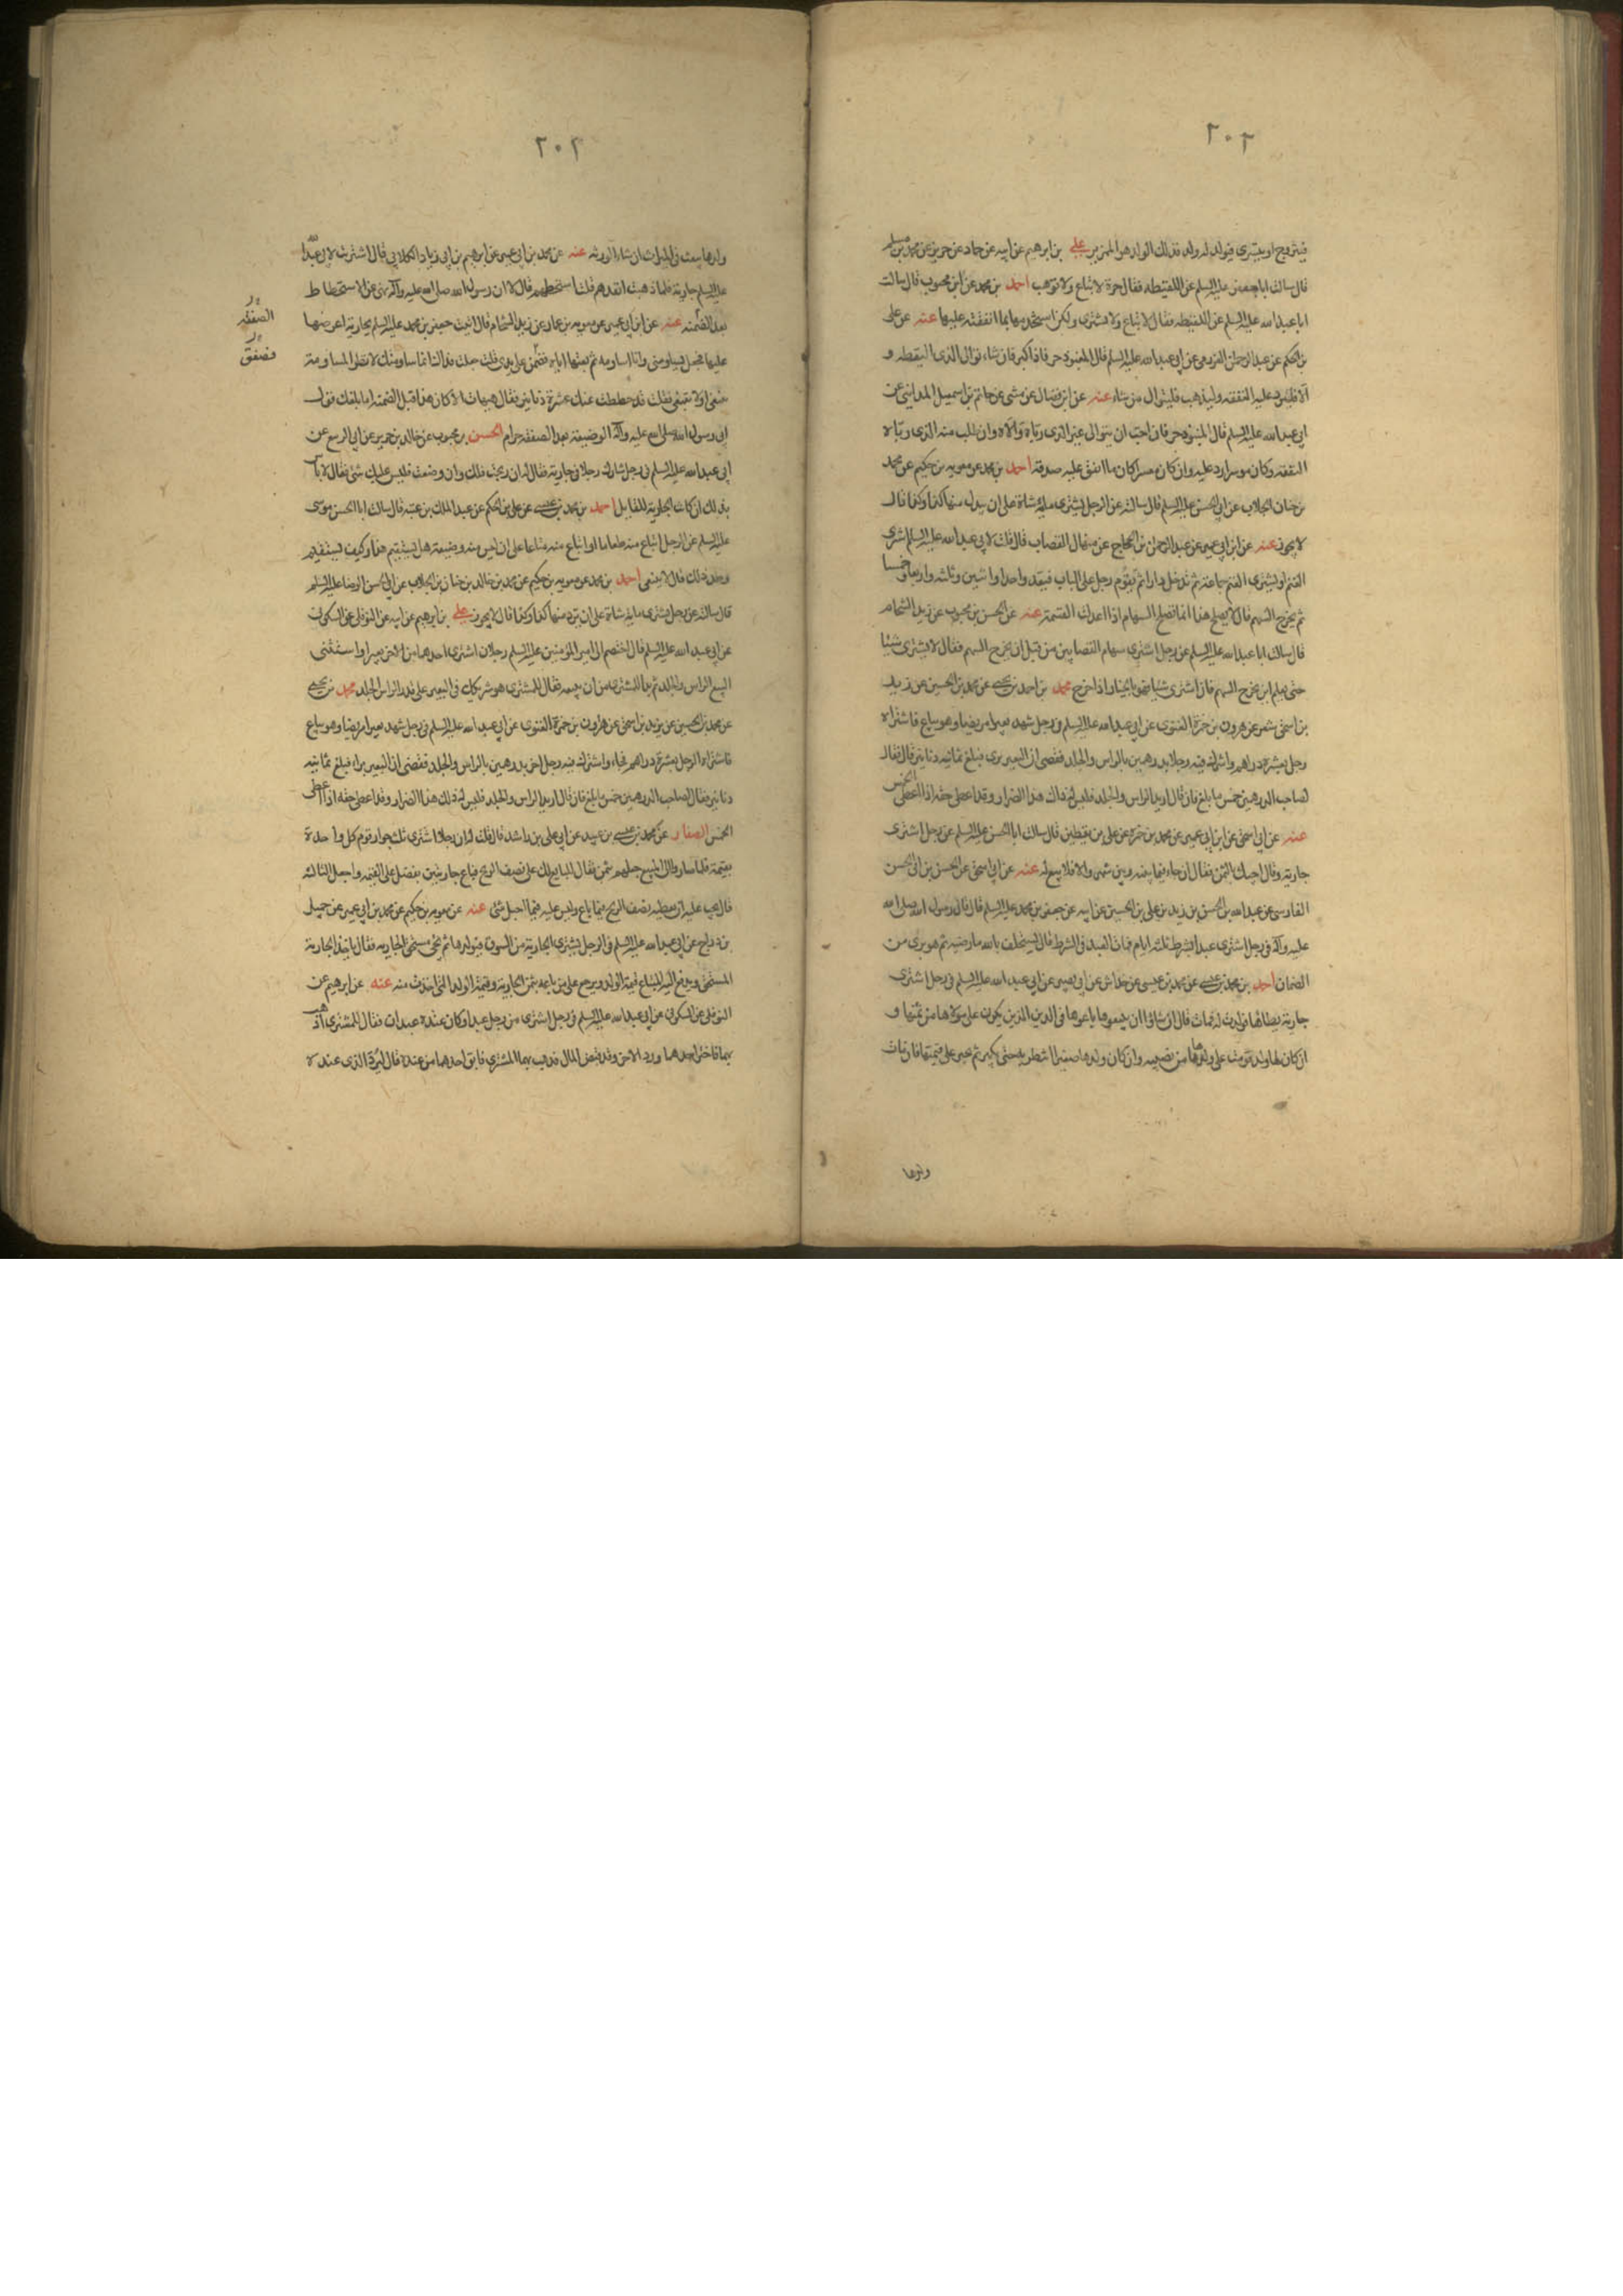 ٢٠٢
فيتزوج او يتسري فيولد له ولد فذلك الولد هو المنبر علي بن ابرهيم عن ابيه عن حماد عن حريز عن محمد بن مسلم
قال سالت ابا جعفر عليه السلم عن اللقيطه فقال حرة لا تباع ولا توهب احمد بن محمد عن ابن محبوب قال سالت
ابا عبد الله عليه السلم عن اللقيطه فقال لا تباع ولا تشترى ولكن استخدمها بما انفقته عليها عنه عن علي
بن الحكم عن عبد الرحمن العزرمي عن ابي عبد الله عليه السلم قال المنبوذ حر فاذا كبر فان شاء توالى الذي التقطه و
الا فليرد عليه النفقه وليذهب فليوال من شاء عنه عن ابن فضال عن مثنى عن حاتم بن اسمعيل المدايني عن
ابي عبد الله عليه السلم قال المنبوذ حر فان احب ان يتوالى غير الذي رباه والاه وان طلب منه الذي رباه
النفقه وكان موسرا رد عليه وان كان معسرا كان ما انفق عليه صدقة احمد بن محمد عن معويه بن حكيم عن محمد
بن حنان الجلاب عن ابي الحسن عليه السلم قال سالته عن الرجل يشترى ماية شاة على ان يبدل منها كذا وكذا قال
لا يجوز عنه عن ابن ابي عمير عن عبد الرحمن بن الحجاج عن منهال القصاب قال قلت لابي عبد الله عليه السلم اشترى
الغنم او يشترى الغنم جماعة ثم تدخل دارا ثم يقوم رجل على الباب فيعد واحدا واثنين وثلثه واربعا وخمسا
ثم يخرج السهم قال لا يصلح هذا انما تصلح السهام اذا عدلت القسمة عنه عن الحسن بن محبوب عن زيد الشحام
قال سالت ابا عبد الله عليه السلم عن رجل اشترى سهام القصابين من قبل ان يخرج السهم فقال لا يشترى شيئا
حتى يعلم اين يخرج السهم فان اشترى شيئا فهو بالخيار اذا خرج محمد بن احمد بن يحيى عن محمد بن الحسين عن زيد
بن اسحق شعر عن هرون بن حمزة الغنوى عن ابي عبد الله عليه السلم في رجل شهد بعيرا مريضا وهو يباع فاشتراه
رجل بعشرة دراهم واشرك فيه رجلا بدرهمين بالراس والجلد فقضى ان البعير برى فبلغ ثمانيه دنانير قال فقال
لصاحب الدرهمين خمس ما بلغ فان قال اريد الراس والجلد فليس له ذاك هذا الضرار وقد اعطى حقه اذا اعطى الخمس
عنه عن ابي اسحق عن ابن ابي عمير عن محمد بن حمزه عن علي بن يقطين قال سالت ابا الحسن عليه السلم عن رجل اشترى
جارية وقال اجيئك بالثمن فقال ان جاء فيما بينه وبين شهر والا فلا بيع له عنه عن ابي اسحق عن الحسن بن ابي الحسن
الفارسي عن عبد الله بن الحسن بن زيد بن علي بن الحسين عن ابيه عن جعفر بن محمد عليه السلم قال قال رسول الله صلى الله
عليه وآله في رجل اشترى عبدا بشرط ثلثه ايام فمات العبد في الشرط قال يستحلف بالله ما رضيه ثم هو برى من
الضمان احمد بن محمد بن عيسى عن محمد بن عيسى عن خداش عن ابي بصير عن ابي عبد الله عليه السلم في رجل اشترى
جارية يطاها فولدت له فمات قال ان شاؤا ان يبيعوها باعوها في الدين الذين يكون على مولاها من ثمنها و
ان كان لها ولد قومت على ولدها من نصيبه وان كان ولدها صغيرا انتظر به حتى يكبر ثم يجبر على قيمتها فان مات
ولدها
٢٠٢
ولدها بيعت في الميراث ان شاء الورثه عنه عن محمد بن ابي عمير عن ابرهيم بن ابي زياد الكلابي قال اشتريت لابي عبد الله
عليه السلم جارية فلما ذهبت انقدهم قلت استحطهم قال لا ان رسول الله صلى الله عليه وآله نهى عن الاستحطاط
بعد الضمنه عنه عن ابن ابي عمير عن معويه بن عمار عن زيد الشحام قال اتيت جعفر بن محمد عليه السلم بجارية اعرضها
الصفقه
عليها فجعل يساومني وانا اساومه ثم بعتها اياه فضمن على يدى قلت جعلت فداك انما ساومتك لانظر المساومة
فصفق
تنبغى او لا تنبغى فقلت قد حططت عنك عشرة دنانير فقال هيهات الا كان هذا قبل الضمنه اما بلغك قول
ابي رسول الله صلى الله عليه وآله الوضيعة بعد الصفقه حرام الحسن بن محبوب عن خالد بن جرير عن ابي الربيع عن
ابي عبد الله عليه السلم في رجل شارك رجلا في جارية فقال له ان ربحت فلك وان وضعت فليس عليك شئ فقال لا باس
بذلك ان كانت الجارية للقايل احمد بن محمد بن عيسى عن علي بن الحكم عن عبد الملك بن عتبه قال سالت ابا الحسن موسى
عليه السلم عن الرجل ابتاع منه طعاما او ابتاع منه متاعا على ان ليس منه وضيعة هل يستقيم هذا وكيف يستقيم
وحد ذلك قال لا ينبغى احمد بن محمد عن معويه بن حكيم عن محمد بن خالد بن حنان بن الجلاب عن ابي الحسن الرضا عليه السلم
قال سالته عن رجل يشترى ماية شاة على ان يرد منها كذا وكذا قال لا يجوز علي بن ابرهيم عن ابيه عن النوفلى عن السكوني
عن ابي عبد الله عليه السلم قال اختصم الى امير المؤمنين عليه السلم رجلان اشترى احدهما من الاخر بعيرا واستثنى
البيع الراس والجلد ثم بدا للمشترى من ان يبيعه فقال للمشترى هو شريكك في البعير على قدر الراس والجلد محمد بن يحيى
عن محمد بن الحسين عن يزيد بن اسحق عن هارون بن حمزة الغنوى عن ابي عبد الله عليه السلم في رجل شهد بعيرا مريضا وهو يباع
فاشتراه الرجل بعشرة دراهم فجاء واشترك فيه رجل اخر بدرهمين بالراس والجلد فقضى ان البعير براء فبلغ ثمانيه
دنانير فقال لصاحب الدرهمين خمس ما بلغ فان قال اريد الراس والجلد فليس له ذلك هذا الضرار وقد اعطى حقه اذا اعطى
الخمس الصفار عن محمد بن عيسى بن عبيد عن ابي علي بن راشد قال قلت له ان رجلا اشترى ثلث جوار قوم كل واحدة
بقيمة فلما صاروا الى البيع جعلهم بثمن فقال للبايع لك على نصف الربح فباع جاريتين بفضل على القيمه واحبل الثالثه
قال يجب عليه ان يعطيه نصف الربح فيما باع وليس عليه فيما احبل شئ عنه عن معويه بن حكيم عن محمد بن ابي عمير عن جميل
بن دراج عن ابي عبد الله عليه السلم في الرجل يشترى الجارية من السوق فيولدها ثم يجئ مستحق الجاريه فقال ياخذ الجارية
المستحق ويدفع اليه المبتاع قيمة الولد ويرجع على من باعه بثمن الجارية وقيمة الولد التى اخذت منه عنه عن ابرهيم عن
النوفلى عن السكوني عن ابي عبد الله عليه السلم في رجل اشترى من رجل عبدا وكان عنده عبدان فقال للمشترى اذهب
بهما فاختر احدهما ورد الاخر وقد قبض المال فذهب بهما المشترى فابق احدهما من عنده قال ليرد الذى عنده